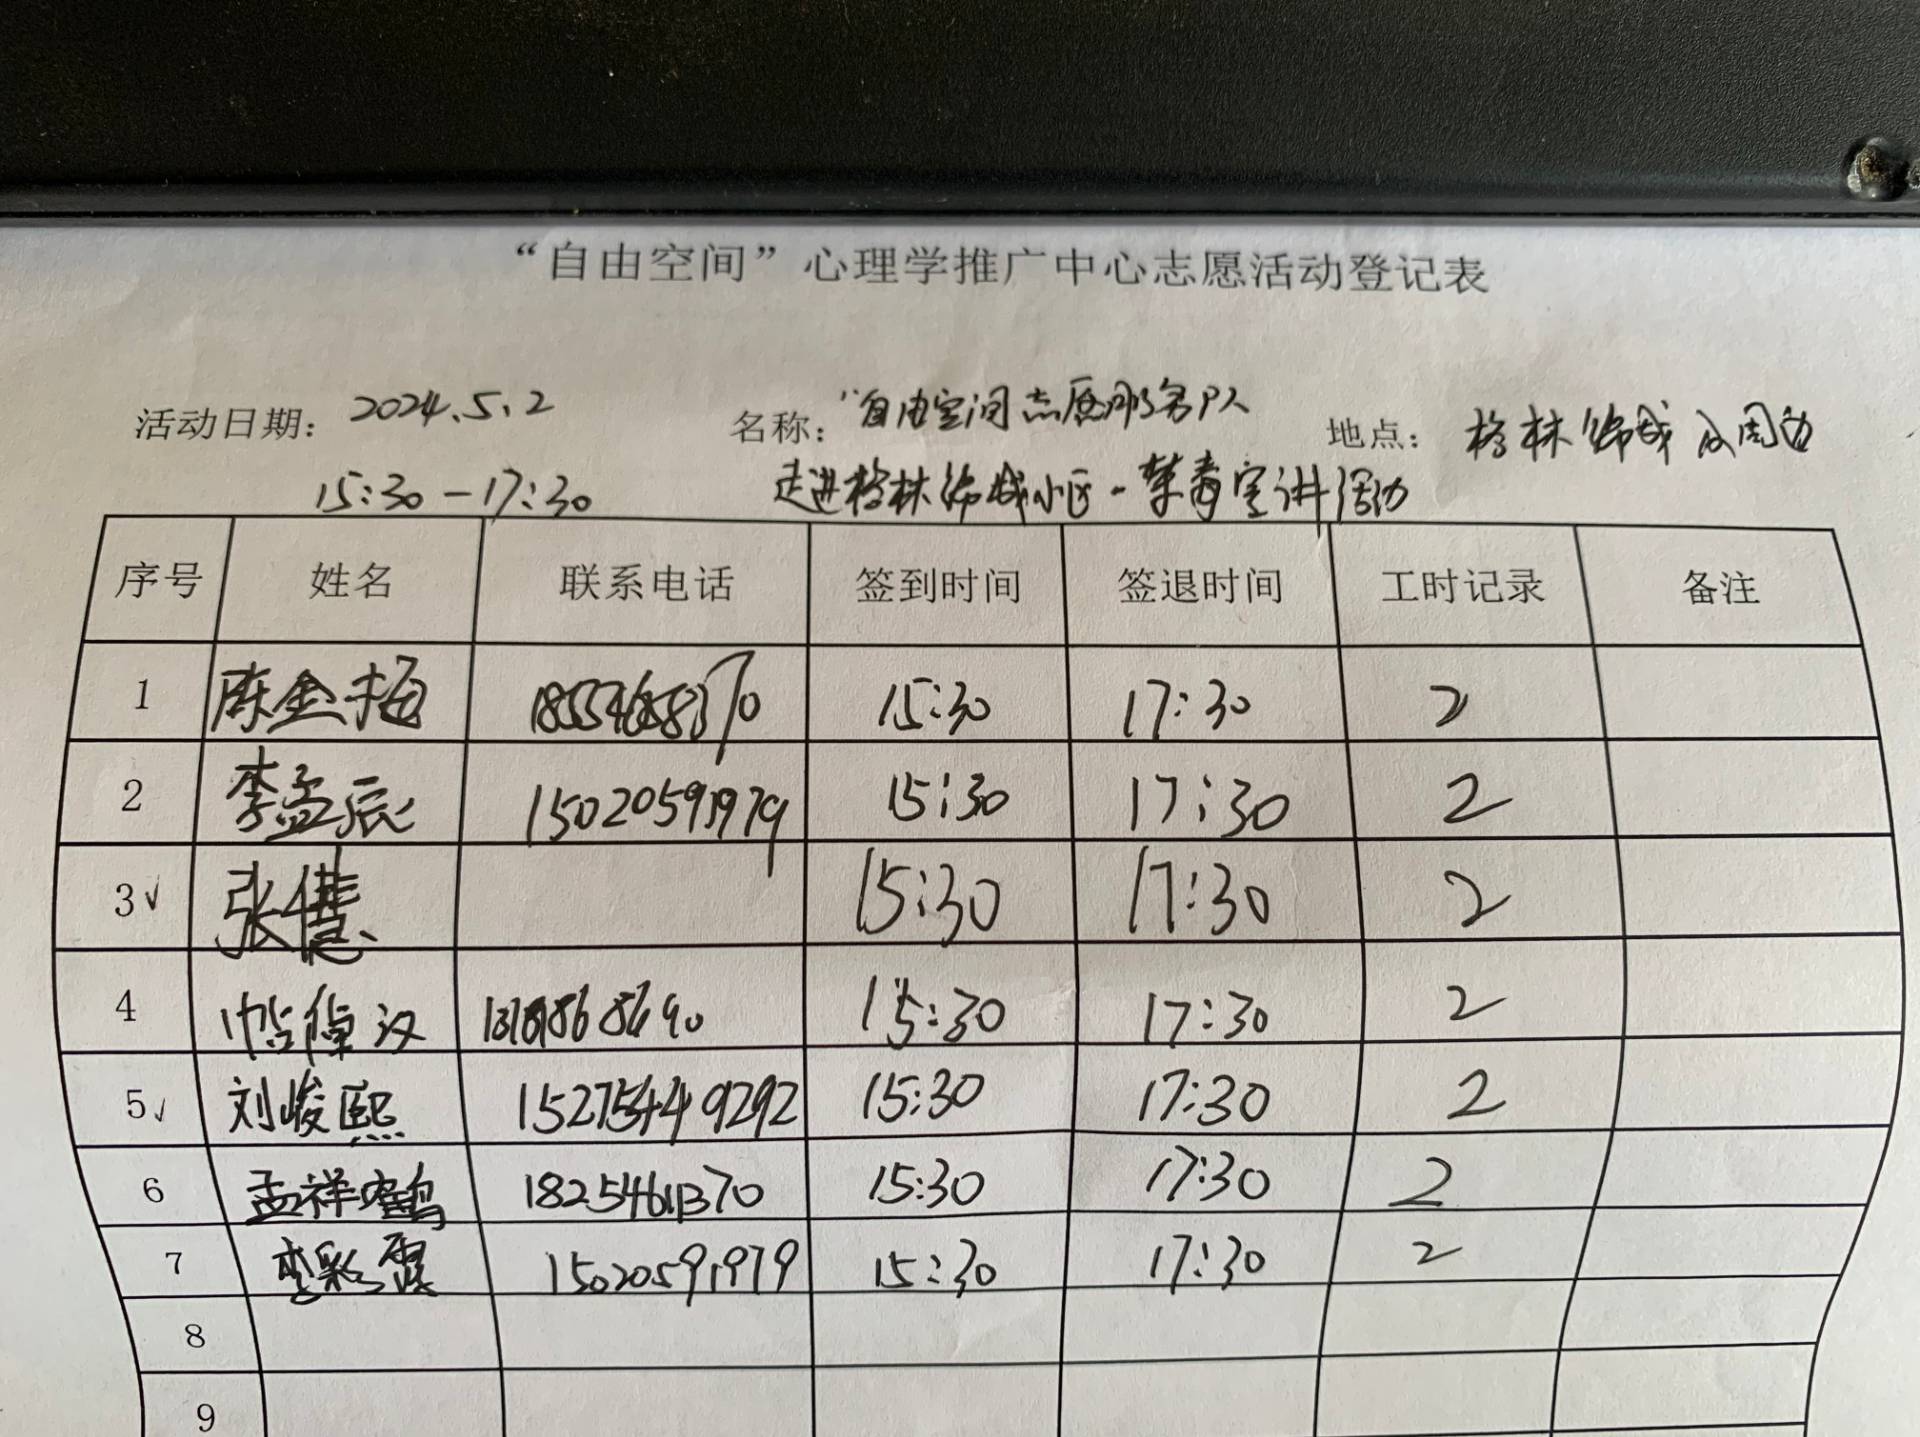 “自由空间”心理学推广中心志愿活动登记表
活动日期：2024.5.2 名称：“自由空间志愿服务队 地点：格林锦城及周边
15:30-17:30 走进格林锦城小区-禁毒宣讲活动
序号 姓名 联系电话 签到时间 签退时间 工时记录 备注
1 陈金梅 15:30 17:30 2
2 李孟辰 15020591979 15:30 17:30 2
3√ 张倩 15:30 17:30 2
4 15:30 17:30 2
5√ 刘峻熙 15275449292 15:30 17:30 2
6 孟祥鹤 15:30 17:30 2
7 李彩霞 15020591979 15:30 17:30 2
8
9